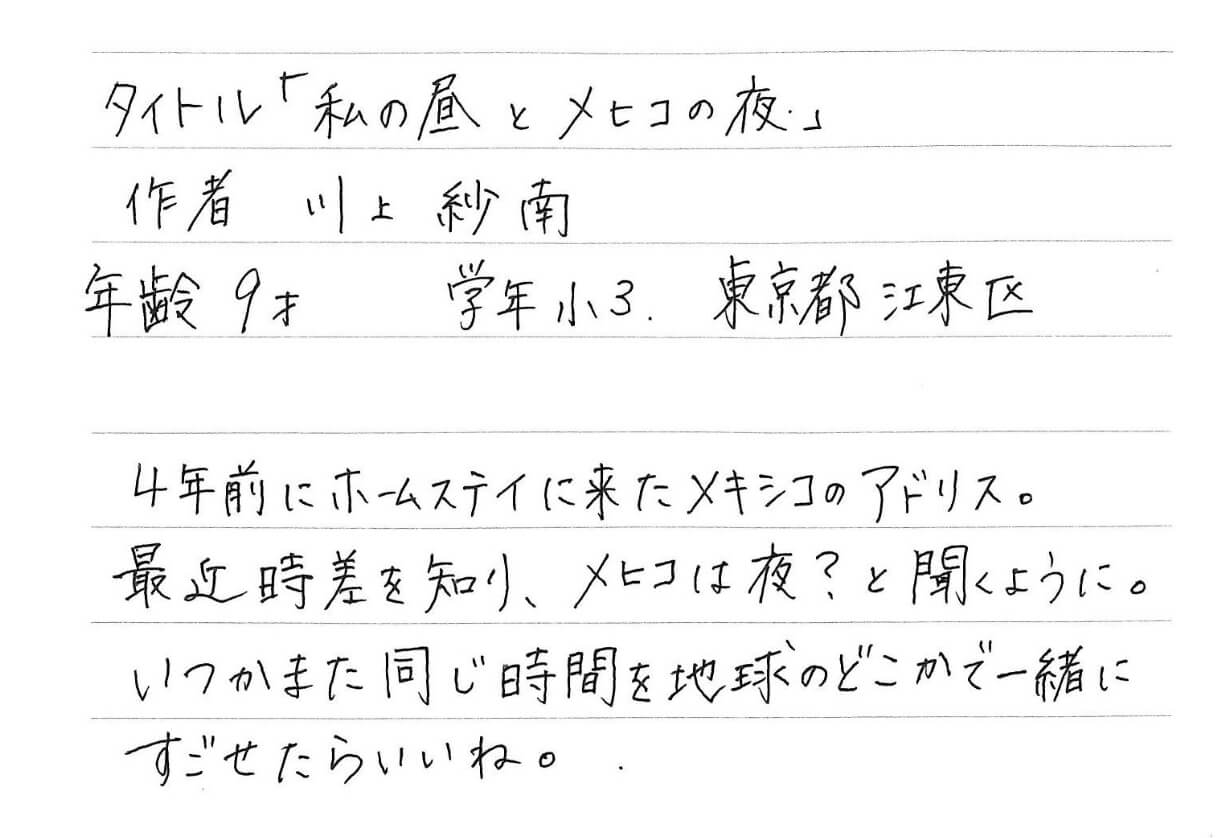 タイトル「私の昼とメヒコの夜」
作者 川上 紗南
年齢 9才 学年 小3. 東京都 江東区
4年前にホームステイに来たメキシコのアドリス。
最近時差を知り、メヒコは夜?と聞くように。
いつかまた同じ時間を地球のどこかで一緒に
すごせたらいいね。